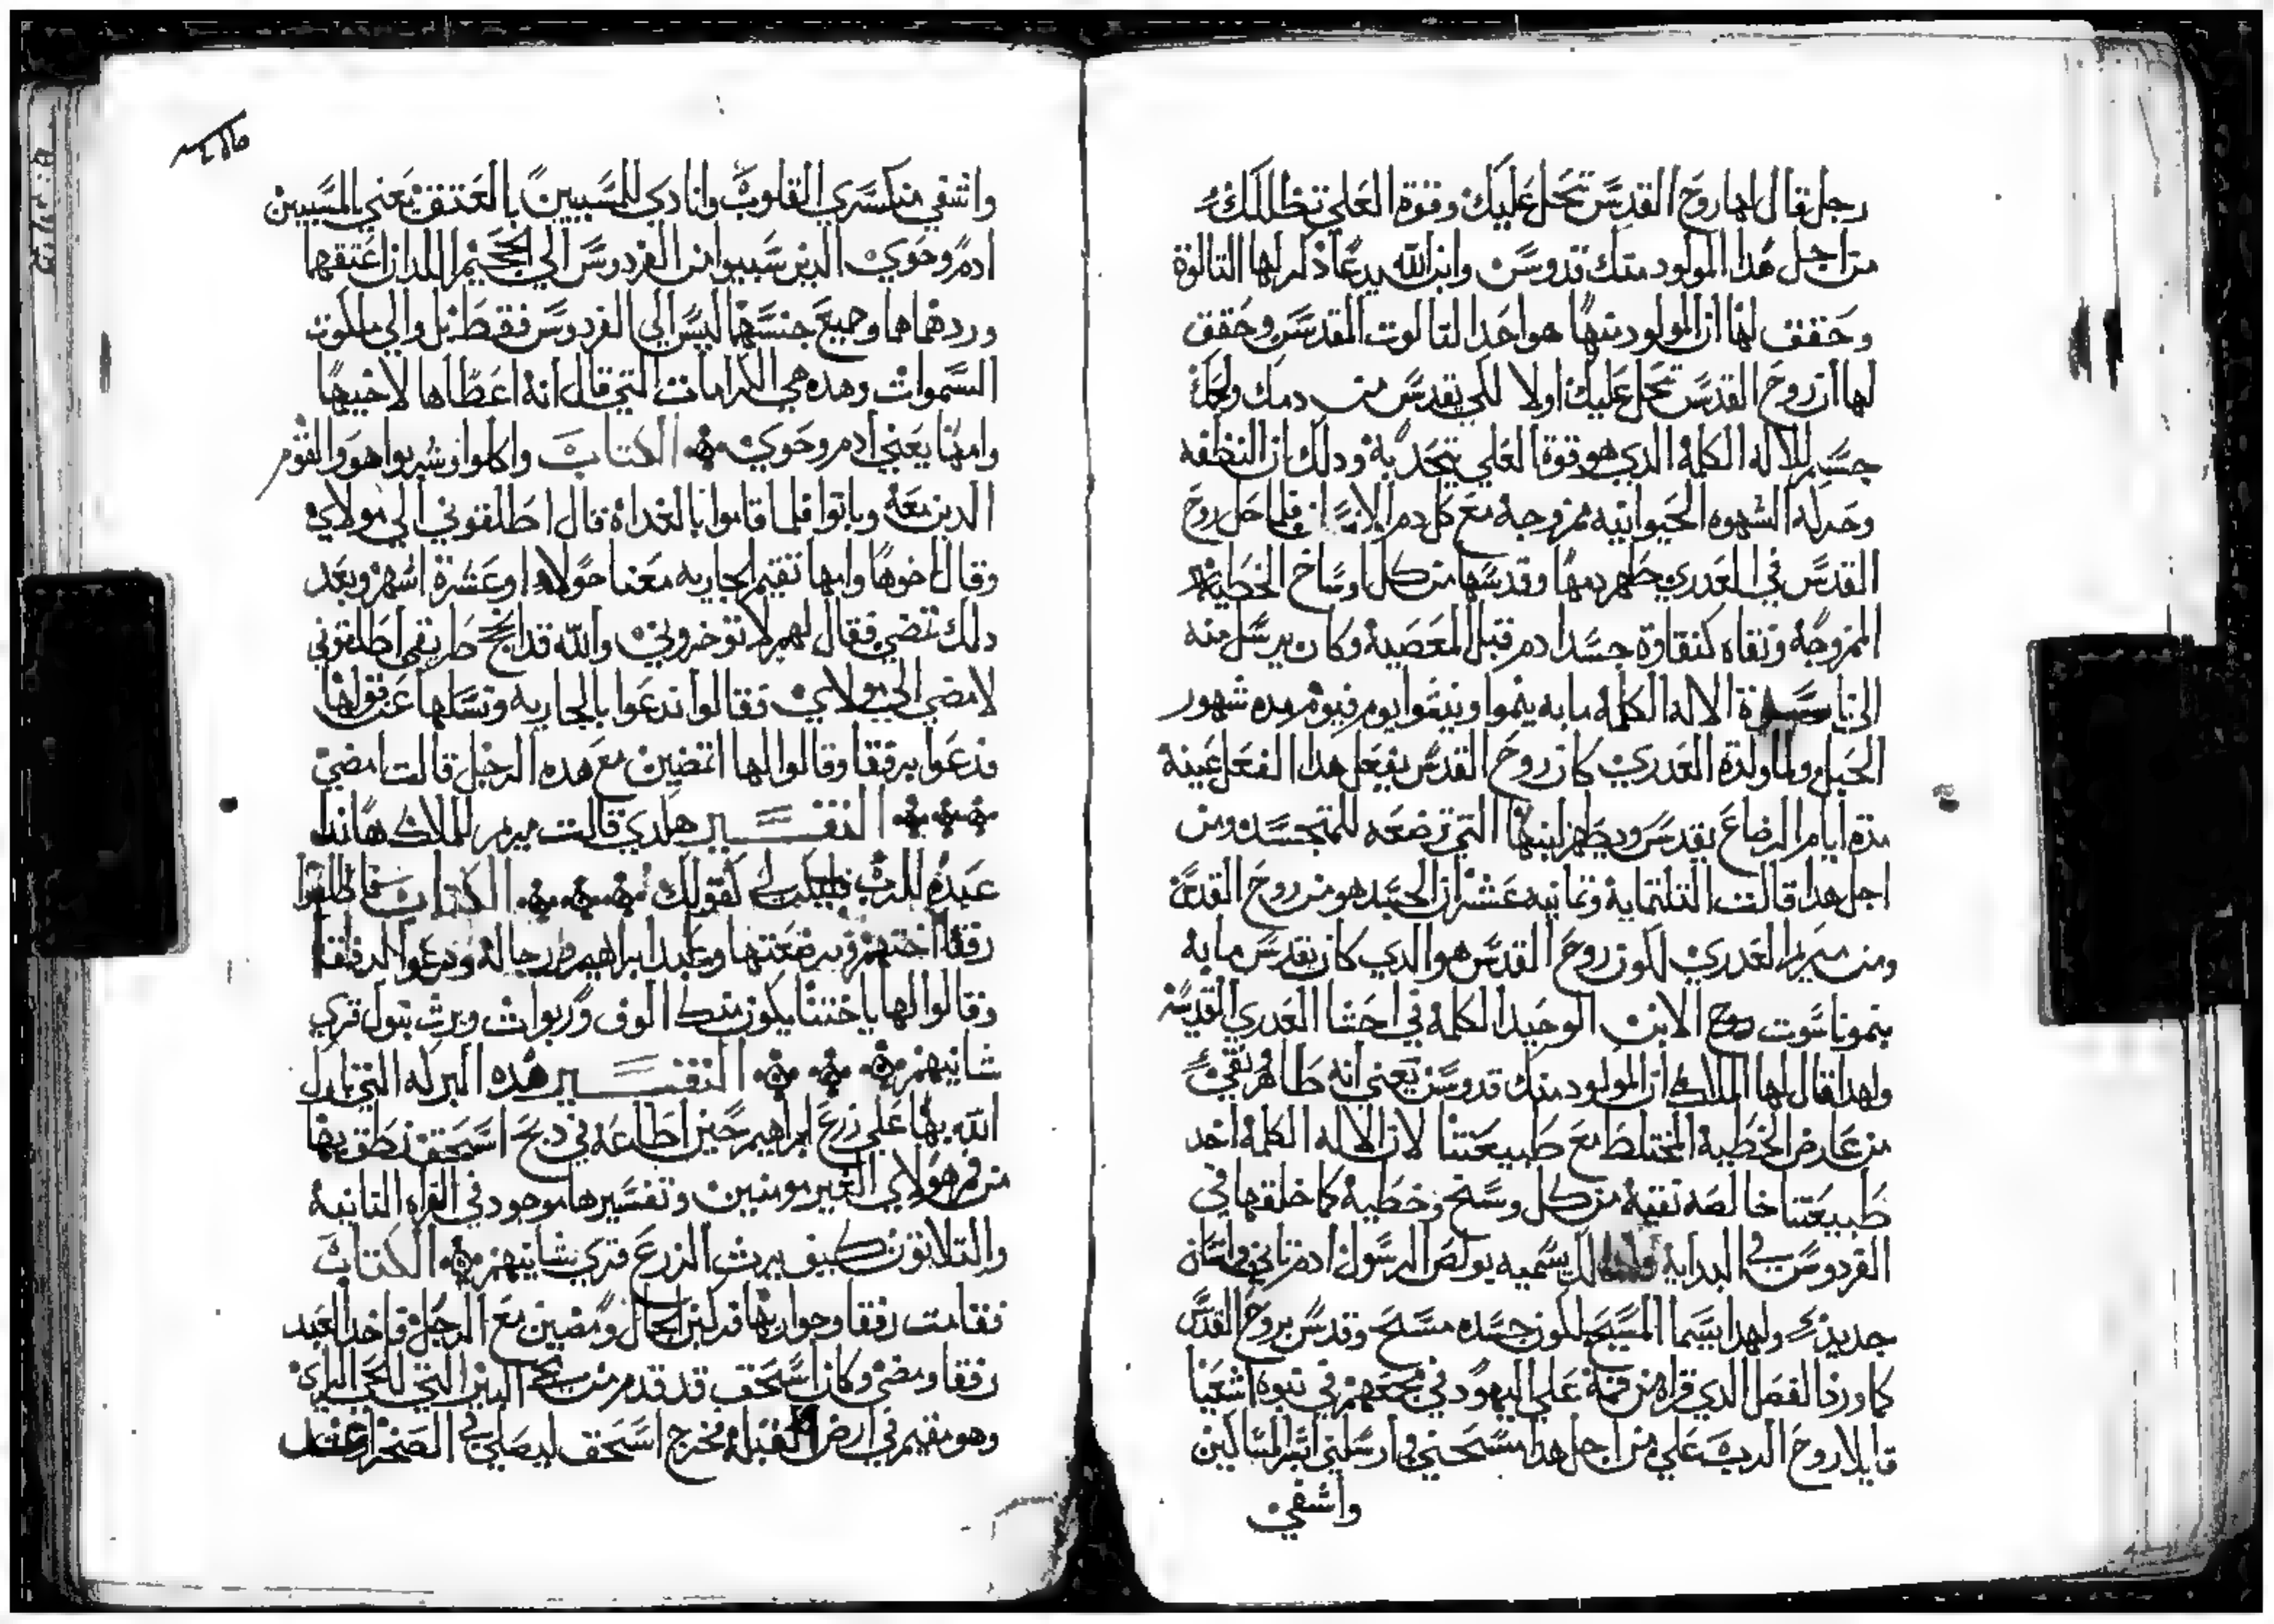 رجل قال لها روح القدس تحل عليك وقوة العلي تظللك
من اجل هذا المولود منك قدوس وابن الله يدعا ذكر لها التالوة
وحقق لها ان المولود منها هو احد التالوت المقدس وحقق
لها ان روح القدس تحل عليك اولا لكي يقدس من دمك ولحمك
جسد للاله الكلمة الدي هو قوة العلي يتحد به ودلك ان النطفه
وحركه الشهوه الحيوانيه ممزوجة مع كل دم الانسان فلما حل روح
القدس في العدري طهر دمها وقدسها من كل اوساخ الخطية
الممزوجة ونقاه كنقاوة جسد ادم قبل المعصية وكان يرسل منه
الي ناسوت الاله الكلمه ما به ينموا وينشوا يوم فيوم مده شهور
الحبل ولما ولدة العدري كان روح القدس يفعل هدا الفعل عينة
مدة ايام الرضاع يقدس ويطهر لبنها التي ترضعه للمتجسد ومن
اجل هدا قالت التلتماية وتمانيه عشر ان الجسد هو من روح القدس
ومن مريم العدري لكون روح القدس هو الدي كان يقدس ما به
ينمو ناسوت روح الابن الوحيد الكلمة في احشا العدري القديسه
ولهدا قال لها الملاك ان المولود منك قدوس يعني انه طاهر نقي
من عارض الخطية المختلط مع طبيعتنا لان الاله الكلمة اخد
طبيعتنا خالصه نقية من كل وسخ وخطية كما خلقها في
الفردوس في البداية ولدلك يسميه بولص الرسول ادم تاني وانسان
جديد ولهدا يسما المسيح لكون جسده مسح وقدس بروح القدس
كما ورد الفصل الدي قراه من فمة علي اليهود في مجمعهم في نبوه اشعيا
قايلا روح الرب علي من اجل هدا مسحني وارسلني ابشر المساكين
واشفي
واشفي منكسري القلوب وانادي للمسبيين بالعتق يعني بالمسبيين
ادم وحوي الدين سبيوا من الفردوس الي الجحيم اللدان اعتقهما
وردهما هما وجميع جنسهما ليس الي الفردوس فقط بل والي ملكوت
السموات وهده هي الكرامات التي قال انه اعطاها لاخيها
وامها يعني ادم وحوي الكتاب واكلوا وشربوا هو والقوم
الدين معه وباتوا فلما قاموا بالغداة قال اطلقوني الي مولاي
وقال اخوها وامها تقيم الجاريه معنا حولا او عشرة اشهر وبعد
دلك تمضي فقال لهم لا توخروني والله قد انجح طريقي اطلقوني
لامضي الي مولاي فقالوا ندعوا بالجاريه ونسلها عن قولها
فدعوا برفقا وقالوا لها اتمضين مع هده الرجل قالت امضي
التفسير هكدي قالت مريم للملاك هاندا
عبدة للرب فليكن لي كقولك الكتاب فاطلقوا
رفقا اختهم ومرضعتها وعبد ابراهيم ورجاله ودعوا لرفقا
وقالوا لها يا ختنا يكون منك الوف وربوات ويرث نسلك قري
شانيهم التفسير هده البركه التي بارك
الله بها علي زرع ابراهيم حين اطاعه في دبح اسحق نطق بها
من فم هولاي الغير مومنين وتفسيرها موجود في القراه التانية
والتلاتون كيف يرث الزرع قري شانيهم الكتاب
فقامت رفقا وجوارها فركبن الجمال ومضين مع الرجل واخد العبد
رفقا ومضي وكان اسحق قد قدم من البير التي للحي الراي
وهو مقيم في ارض القبلة فخرج اسحق ليصلي في الصحرا